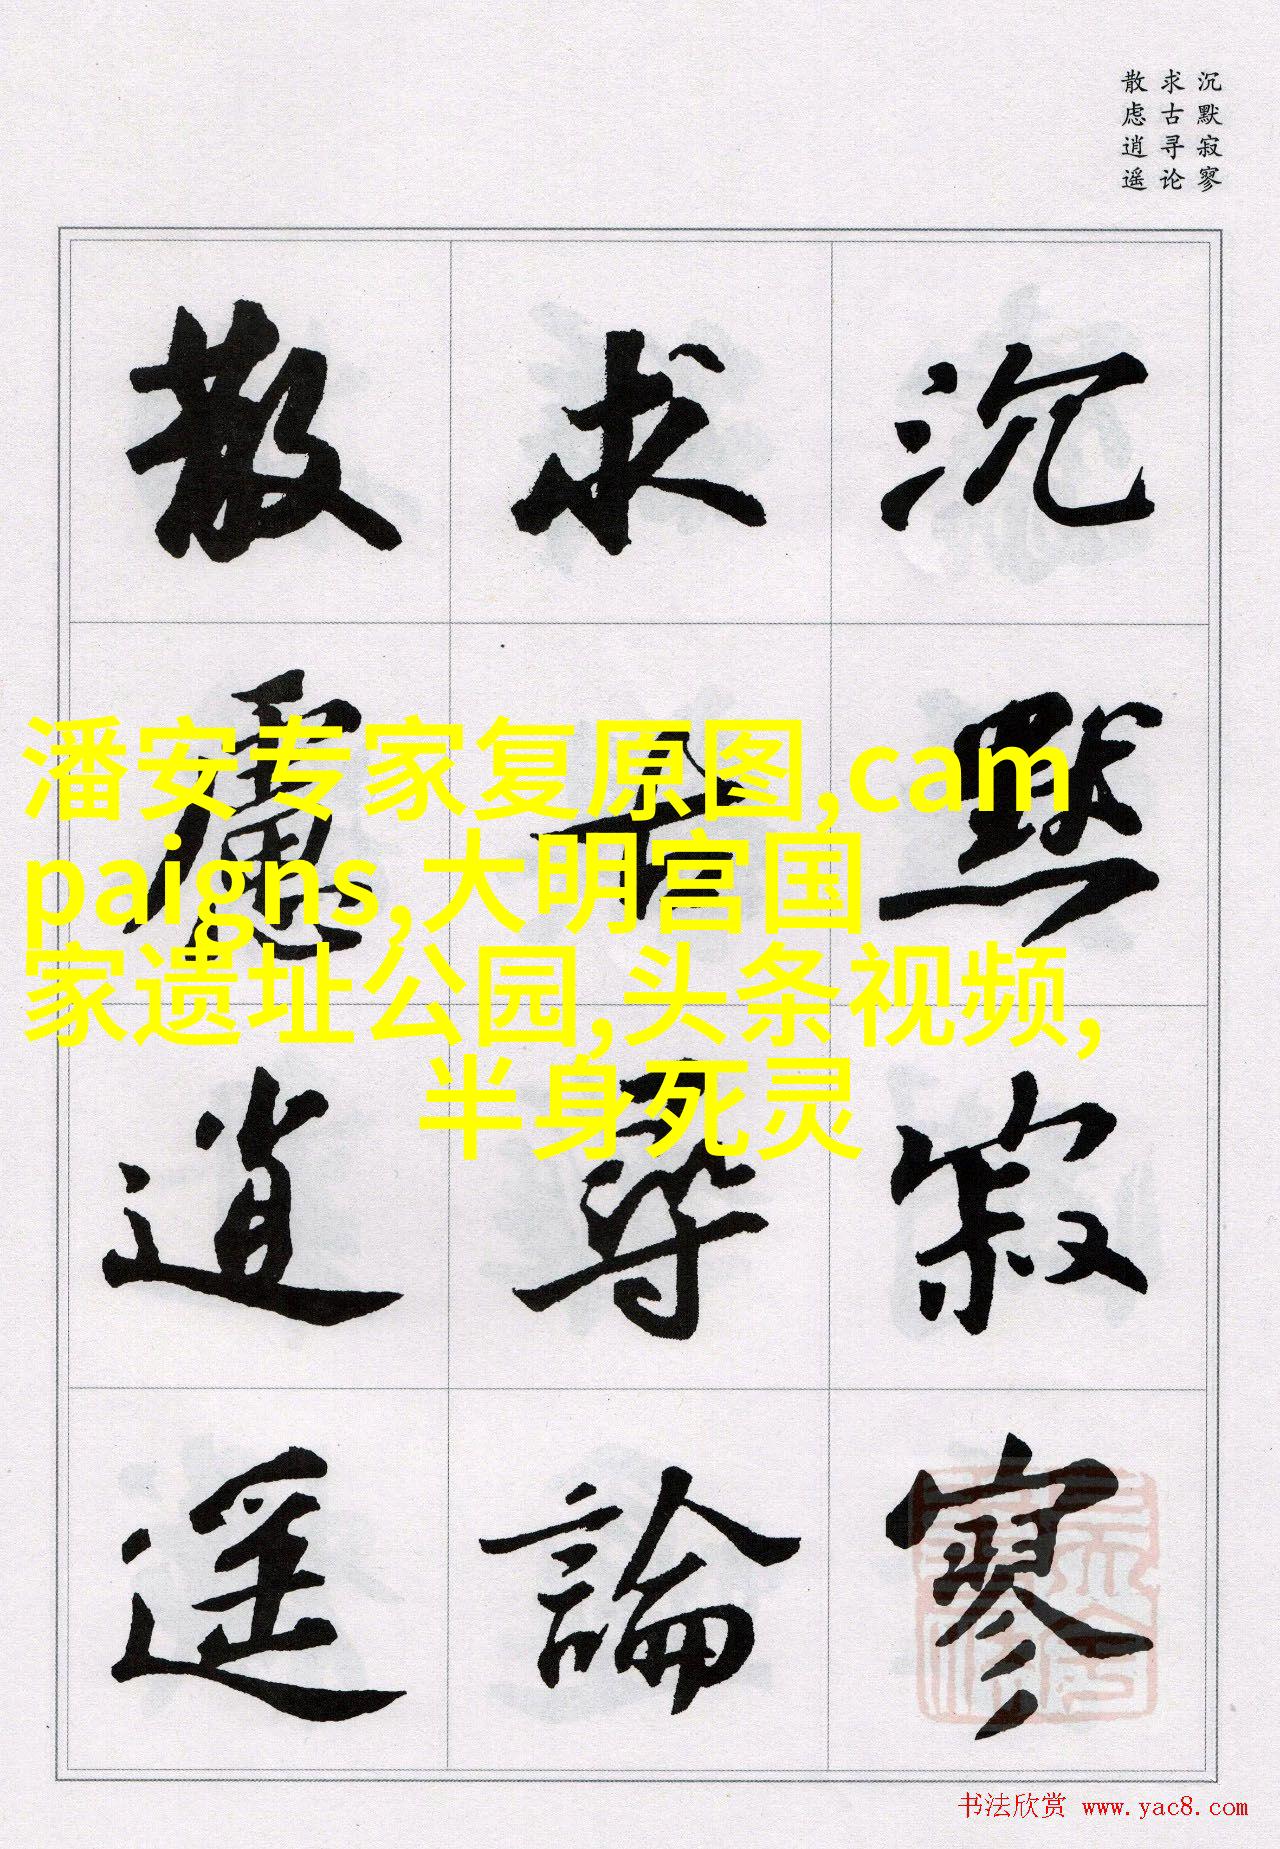 沉默寂寥
求古寻论
散虑逍遥
沉默寂寥
求古尋論
散慮逍遥
潘安专家复原图,cam
paigns,大明宫国
家遗址公园,头条视频,
半身死灵
书法欣赏 www.yac8.com